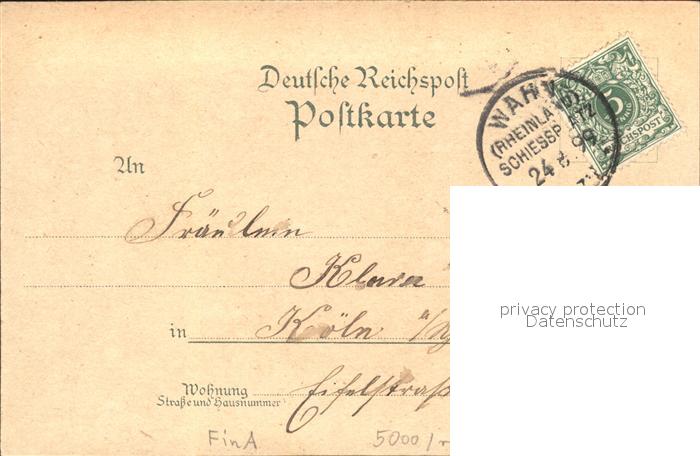 Deutsche Reichspost
Postkarte
WAHN
(RHEINLAND)
SCHIESSPLATZ
24
5
REICHSPOST
An
Fräulein
Klara
in Köln a/Rh
Wohnung
Straße und Hausnummer
Eifelstraß
privacy protection
Datenschutz
FinA 5000/